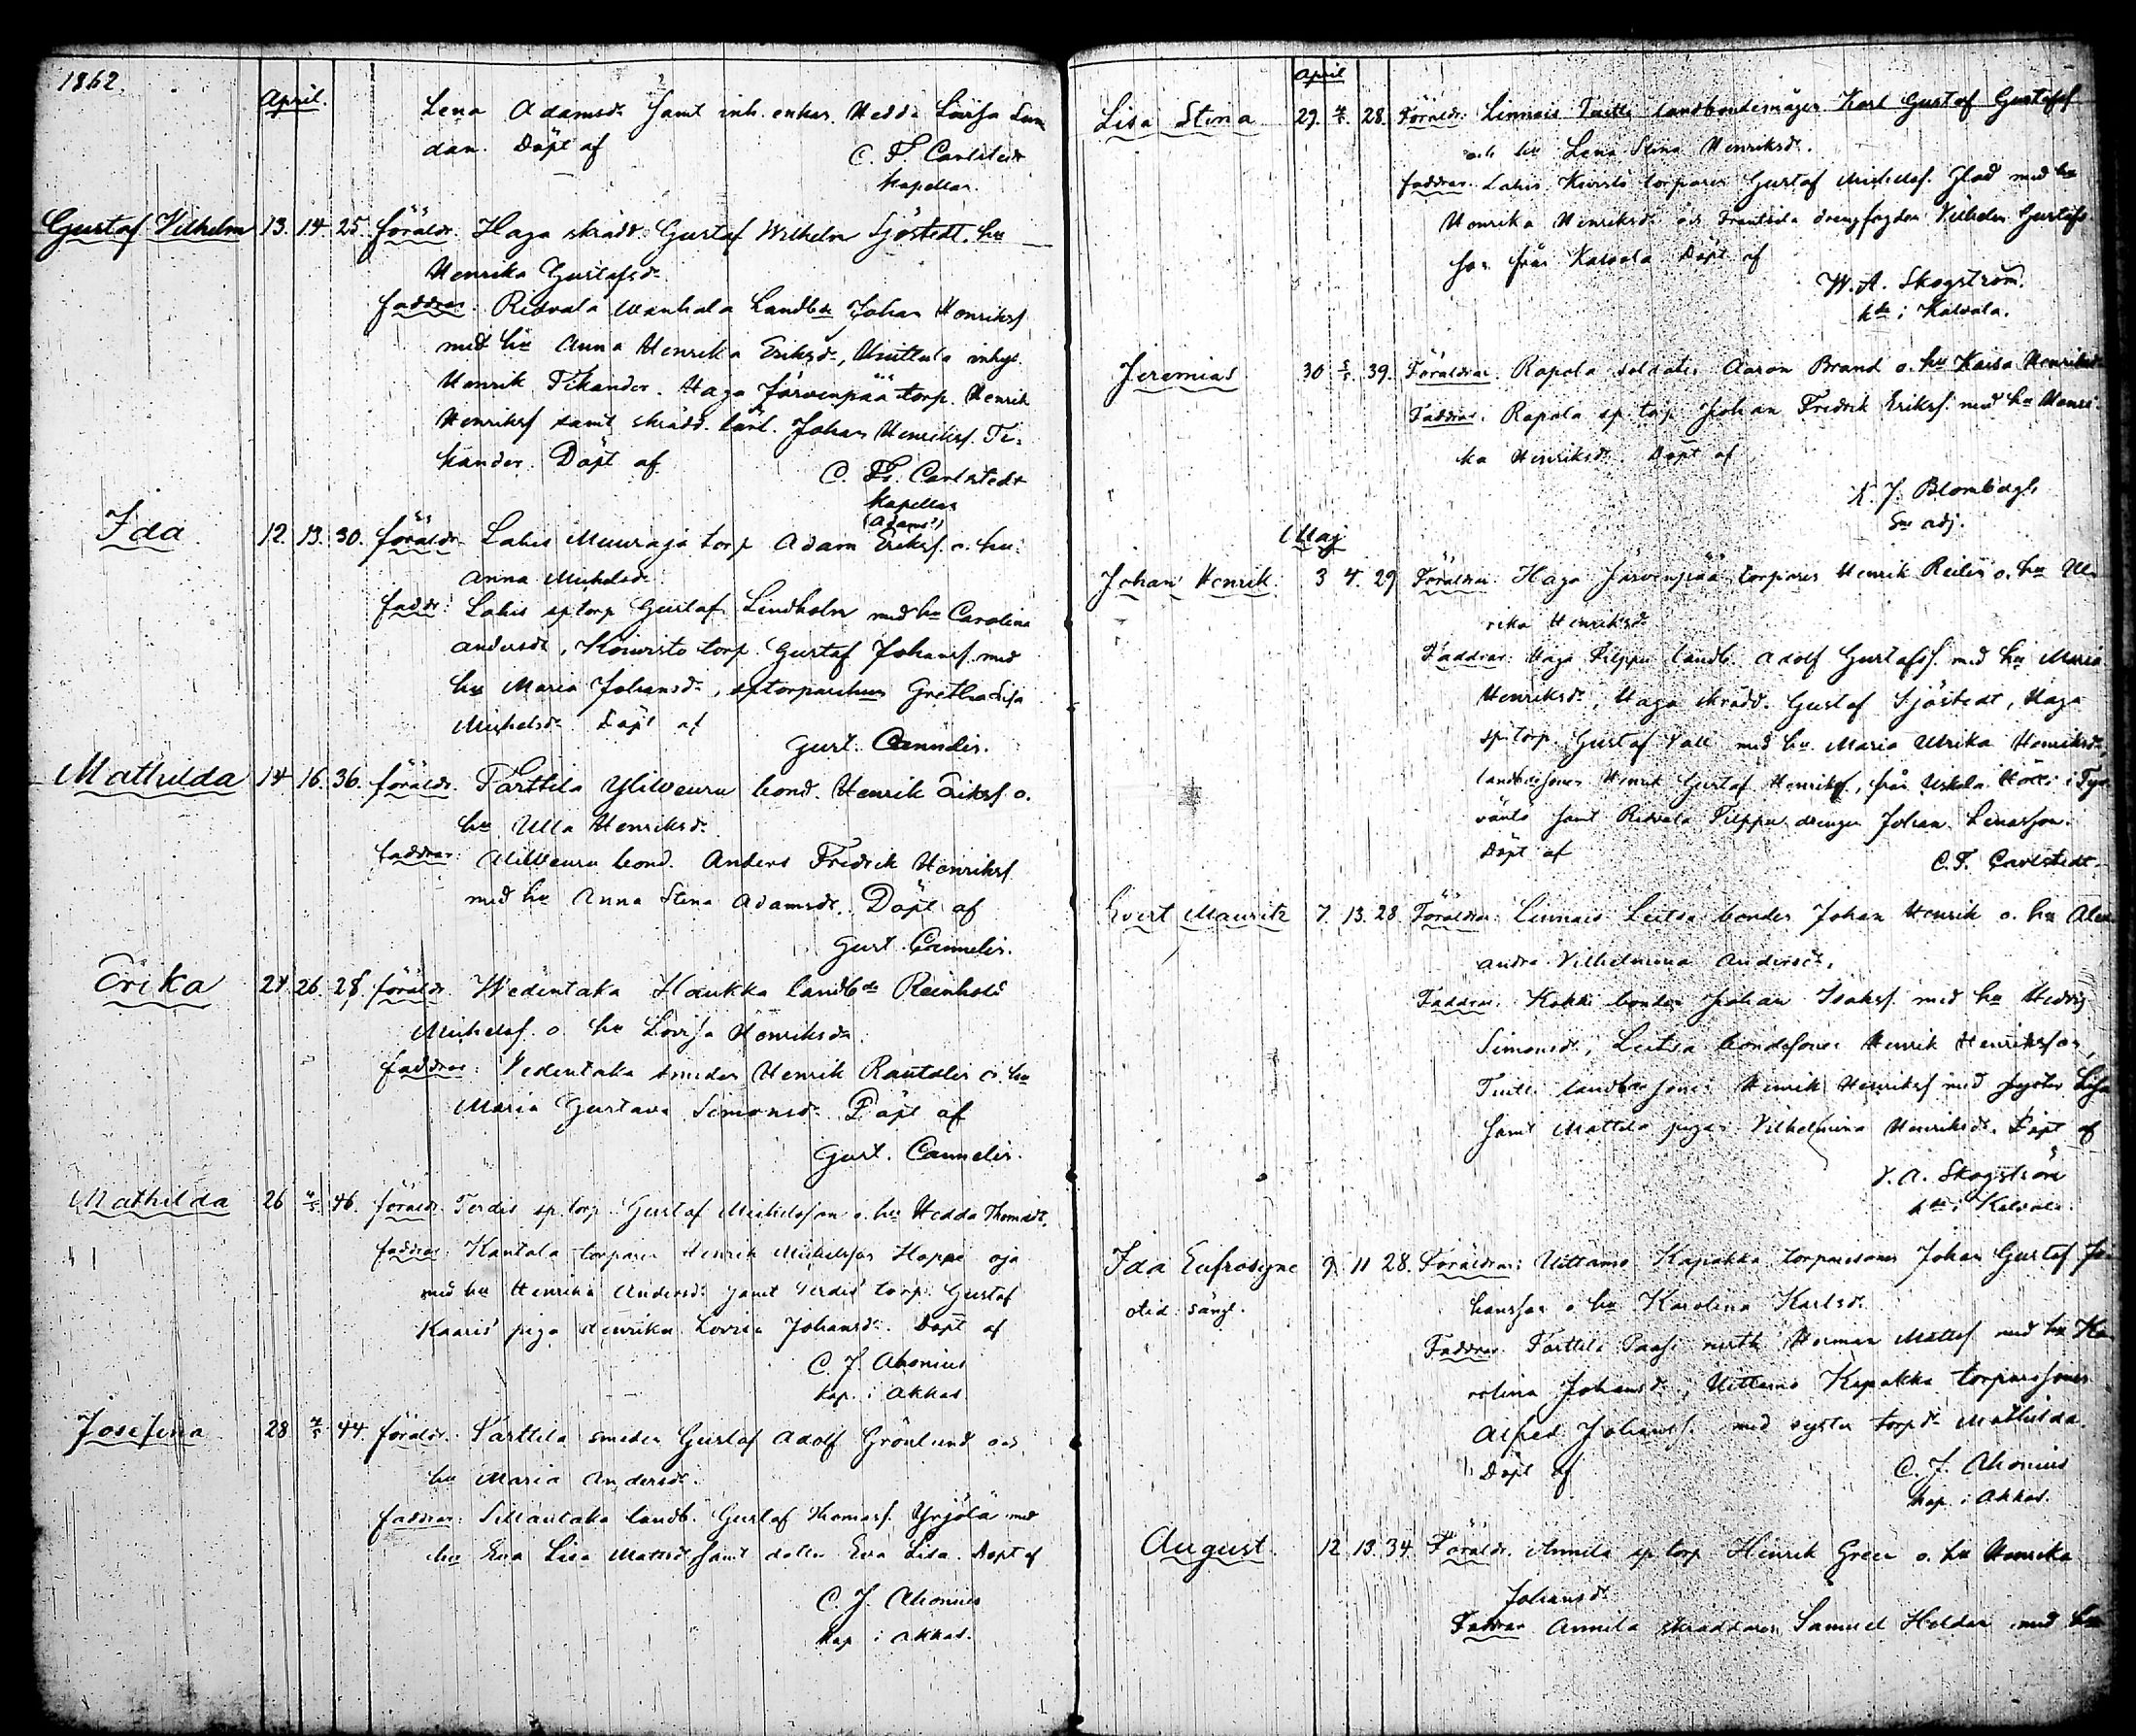 1862.
April.
Lena Adamsdr samt inh. enkan Hedda Lovisa Sun
dan. Döpt af
C. F. Carlstedt
kapellan.
Gustaf Vilhelm 13. 14. 25. föräldr. Haga skrädd. Gustaf Wilhelm Sjöstedt, hu
Henrika Gustafsdr
faddrar. Ridvala Wanhala Landbde Johan Henriksf
med hu Anna Henrika Eriksdr, Huittula inhys.
Henrik Tikander. Haga Järvenpää torp. Henrik
Henriksf samt skrädd. lärl. Johan Henriksf. Ti-
kander. Döpt af
C. F. Carlstedt
kapellan
(Adams?)
Ida. 12. 13. 30. föräldr. Lahis Muuraja torp Adam Eriksf. o. hu.
Anna Michelsdr
faddr: Lahis sp torp Gustaf Lindholm med hu Carolina
Andersdr, Koivisto torp. Gustaf Johansf. med
hu Maria Johansdr, sptorparehus Gretha Lisa
Michelsdr Döpt af
Gust. Cannelin.
Mathilda 14 16. 36. föräldr. Parttila Yliweuru bond. Henrik Eriksf o.
hu Ulla Henriksdr
faddrar: Aliweuru bond. Anders Fredrik Henriksf
med hu Anna Stina Adamsdr. Döpt af
Gust. Cannelin.
Erika 24. 26. 28. föräldr. Wedentaka Haukka landbde Reinhold
Michelsf. o. hu Lovisa Henriksdr
faddrar: Vedentaka smeden Henrik Rautelin o. hu
Maria Gustava Simonsdr Döpt af
Gust. Cannelin.
Mathilda 26 4/5 46. föräldr. Terdis sp. torp. Gustaf Michelsson o. hu Hedda Thomasdr.
faddrar: Kantala torparen Henrik Michelsson Hoppe oja
med hu Henrika Andersdr samt Terdis torp. Gustaf
Kaaris piga Henrika Lovisa Johansdr. Döpt af
C. J. Ahonius
kap. i Akkas.
Josefina 28 4/5 44. föräldr. Parttila smeden Gustaf Adolf Grönlund och
hu Maria Andersdr.
faddrar: Sillantaka landb. Gustaf Thomasf. Yrjölä med
hu Eva Lisa Mattsdr samt dotter Eva Lisa. Döpt af
C. J. Ahonius
kap i Akkas.
April
Lisa Stina 29. 4/5. 28. Föräldr: Linnais Tuitti landbondemågen Karl Gustaf Gustafsf
och hu Lena Stina Henriksdr.
faddrar. Lahis torparen Gustaf Michelsf. Glad med hu
Henrika Henriksdr och drengfogden Vilhelm Gustafs
son från Kalvola Döpt af
W. A. Skogström.
i Kalvola.
Jeremias 30 5/5. 39. Föräldrar. Rapola soldaten Aaron Brand o. hu Kaisa Henriksdr
Faddrar. Rapola sp. torp Johan Fredrik Eriksf. med hu Henri-
ka Henriksdr. Döpt af
K. J. Blombergh,
adj.
Maj
Johan Henrik. 3 4. 29 Föräldrar. Haga Järvenpää torparen Henrik o. hu Ul-
rika Henriksdr
Faddrar: Haga Filppu landb. Adolf Gustafsf. med hu Maria
Henriksdr, Haga skrädd. Gustaf Sjöstedt, Haga
sp. torp. Gustaf med hu. Maria Ulrika Henriksdr,
landbosonen Henrik Gustaf Henriksf, från Uskila i Tyr-
väntö samt Ridvala Filppu drengen Johan
Döpt af
C. F. Carlstedt.
Evert Mauritz 7. 13. 28. Föräldrar. Linnais Leitsa bonden Johan Henrik o. hu Alex
andra Vilhelmina Andersdr.
Faddrar. Kokki bonden Johan Isaksf. med hu Hedvig
Simonsdr, Leitsa bondesonen Henrik Henriksson,
Tuitti landbosonen Henrik Henriksf med syster Lisa
samt Mattila pigan Vilhelmina Henriksdr. Döpt af
V. A. Skogström
i Kalvola.
Ida Eufrosyne 9. 11 28. Föräldrar: Uittamo Kapakka torparesonen Johan Gustaf Jo-
otid. sängl. hansson o hu Karolina Karlsdr
Faddrar. Parttila Paasi Herman Mattsf. med hu Ka
rolina Johansdr, Uittamo Kapakka torparesonen
Alfred Johansf. med syster torpdr Mathilda.
Döpt af
C. J. Ahonius
kap. i Akkas.
August. 12. 13. 34. Föräldr. Annila sp torp Henrik Green o. hu Henrika
Johansdr
Faddrar Annila skräddaren Samuel Heldan med hu